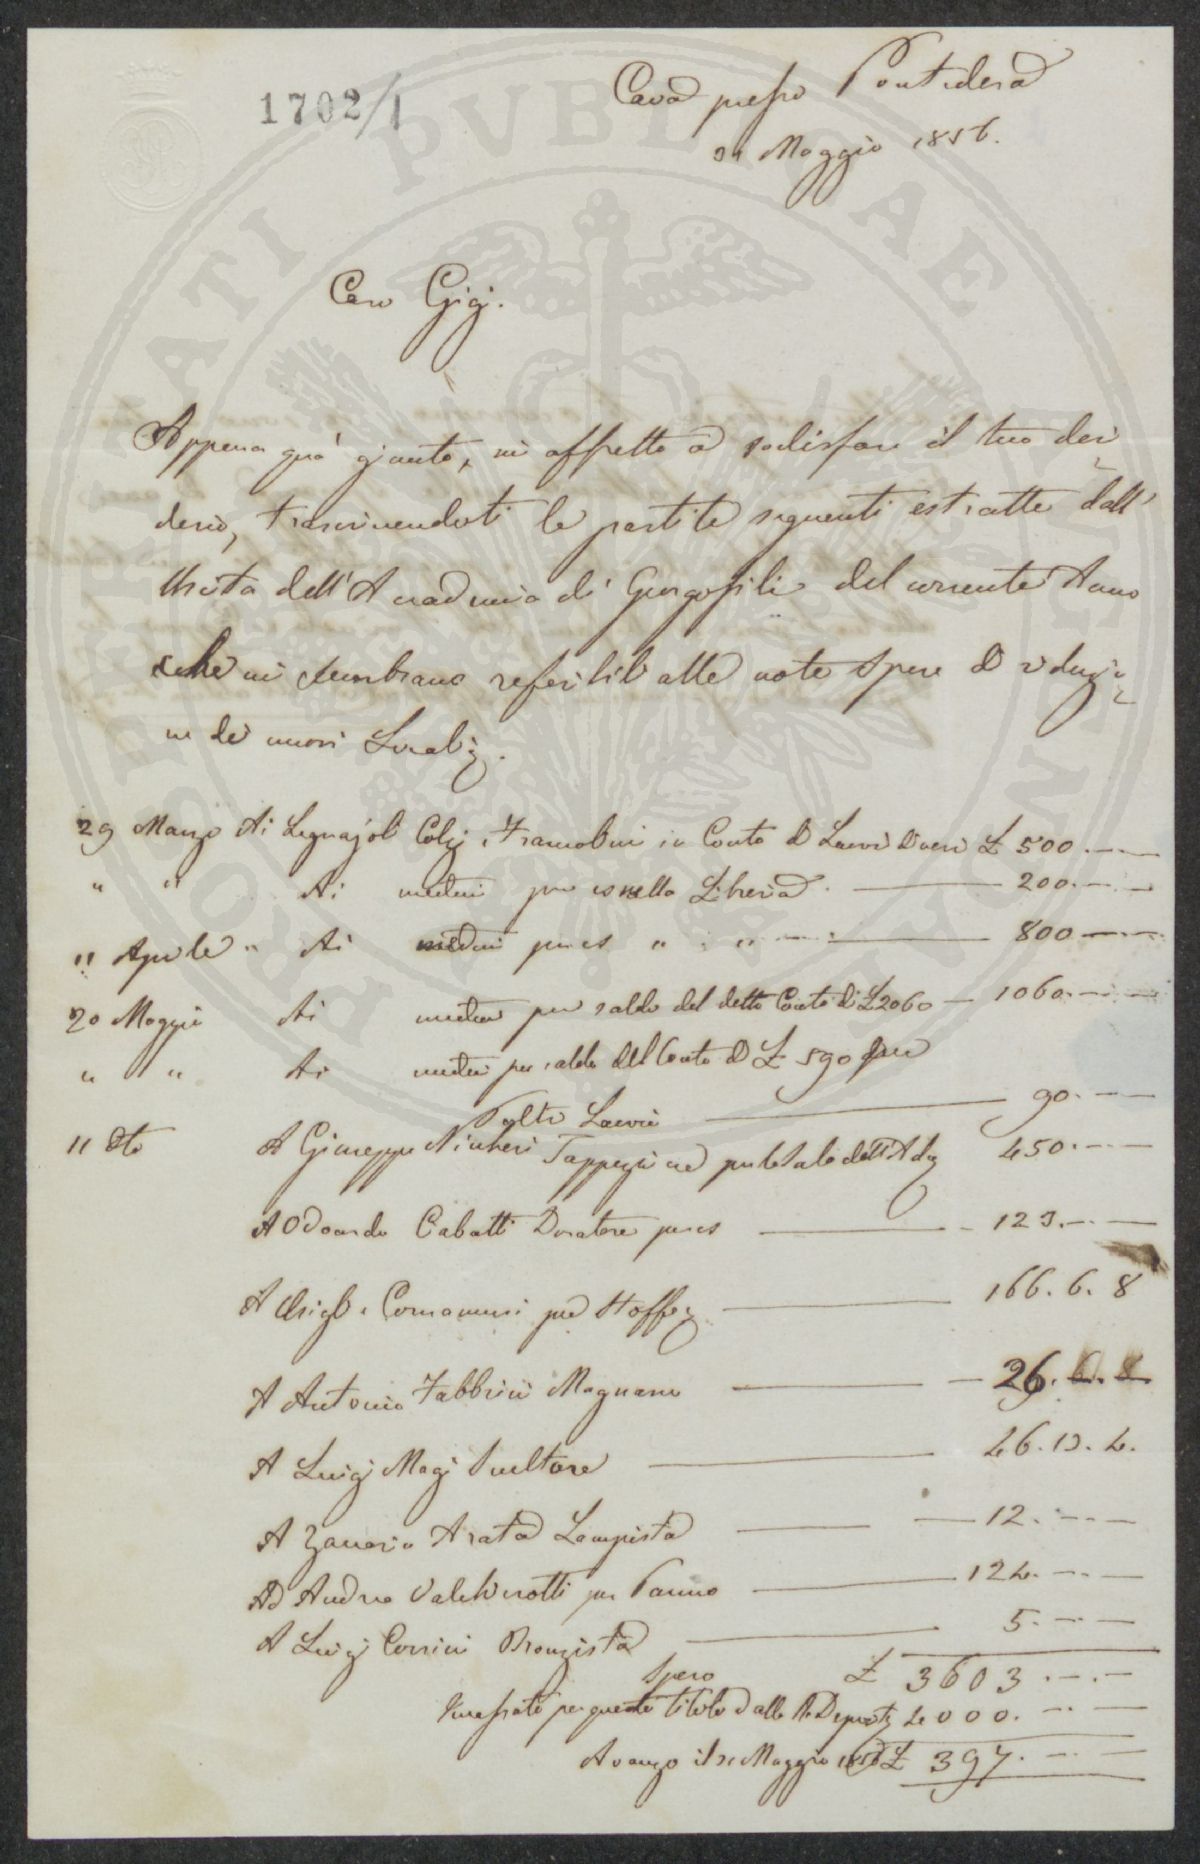 1702/1
Cava presso Pontedera
21 Maggio 1856.
Caro Gigi.
Appena quà giunto, mi affretto a sodisfare il tuo desi=
derio, trascrivendoti le partite seguenti estratte dall'
Uscita dell'Accademia dei Georgofili del corrente Anno
che mi sembrano referibili alle note spese di riduzio=
ne dei nuovi Locali.
29 Marzo Ai Legnajoli Colzi e Francolini in Conto di Lavori Diversi £ 500. — —
" " Ai medesimi per es nella Libreria. — 200. — —
" Aprile " Ai medesimi per es " " — 800 — —
20 Maggio Ai medesimi per saldo del detto Conto di £ 2060 — 1060. — —
" " Ai medesimi per saldo del Conto di £ 590 per
Lavori — 90. — —
11 Dto A Giuseppe Tappezziere per le Sale dell'Ada 450. — —
A Odoardo Cabatti Doratore per es — 123. — —
A Cornamusi per Stoffe — 166. 6. 8
A Antonio Fabbrini Magnano — 26. — —
A Luigi Magi Scultore — 46. 13. 4.
A Zanobi Arata Lampista — 12. — —
Ad Andrea per Panno — 124. — —
A Luigi Corsini Bronzista — 5. — —
Spesa £ 3603. — —
Incassate per questo titolo dalla R Deputaz 4000. — —
Avanzo il 21 Maggio 1856 £ 397. — —
PROPERTATI PVBLICAE